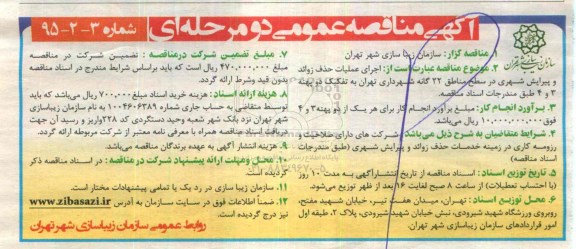 آگهی مناقصه عمومی دو مرحله‌ای
شماره ۳-۲-۹۵
سازمان زیباسازی شهر تهران
۱. مناقصه گزار: سازمان زیبا سازی شهر تهران
۲. موضوع مناقصه عبارت است از: اجرای عملیات حذف زوائد
و پیرایش شهری در سطح مناطق ۲۲ گانه شهرداری تهران به تفکیک در پهنه
۳ و ۴ طبق مندرجات اسناد مناقصه.
۳. برآورد انجام کار: مبلغ برآورد انجام کار برای هر یک از دو پهنه ۳ و ۴
فوق ۱۰,۰۰۰,۰۰۰,۰۰۰ ریال می‌باشد.
۴. شرایط متقاضیان به شرح ذیل می‌باشد: شرکت های دارای صلاحیت و
رزومه کاری در زمینه خدمات حذف زوائد و پیرایش شهری (طبق مندرجات
اسناد مناقصه)
۵. تاریخ توزیع اسناد: اسناد مناقصه از تاریخ انتشار آگهی به مدت ۱۰ روز
(با احتساب تعطیلات) از ساعت ۸ صبح لغایت ۱۶ بعد از ظهر توزیع می‌شود.
۶. محل توزیع اسناد: تهران، میدان هفت تیر، خیابان شهید مفتح،
روبروی ورزشگاه شهید شیرودی، نبش خیابان شهید شیرودی، پلاک ۲، طبقه اول
امور قراردادهای سازمان زیباسازی شهر تهران.
۷. مبلغ تضمین شرکت در مناقصه: تضمین شرکت در مناقصه
۴۷۰,۰۰۰,۰۰۰ ریال است که باید براساس شرایط مندرج در اسناد مناقصه
بدون قید وشرط ارائه گردد.
۸. هزینه ارائه اسناد: هزینه خرید اسناد مبلغ ۷۰۰,۰۰۰ ریال می‌باشد که باید
توسط متقاضی به حساب جاری شماره ۱۰۰۴۶۰۶۳۸۹ به نام سازمان زیباسازی
شهر تهران نزد بانک شهر شعبه وحید دستگردی کد ۲۲۸ واریز و رسید آن جهت
دریافت اسناد مناقصه همراه با معرفی نامه معتبر از شرکت مربوطه ارائه گردد.
۹. هزینه انتشار آگهی به عهده برندگان مناقصه می‌باشد.
۱۰. محل ومهلت ارائه پیشنهاد شرکت در مناقصه: در اسناد مناقصه ذکر
گردیده است.
۱۱. سازمان زیبا سازی در رد یک یا تمامی پیشنهادات مختار است.
۱۲. ضمناً اطلاعات فوق در سایت سازمان به آدرس www.zibasazi.ir
نیز درج گردیده است.
روابط عمومی سازمان زیباسازی شهر تهران